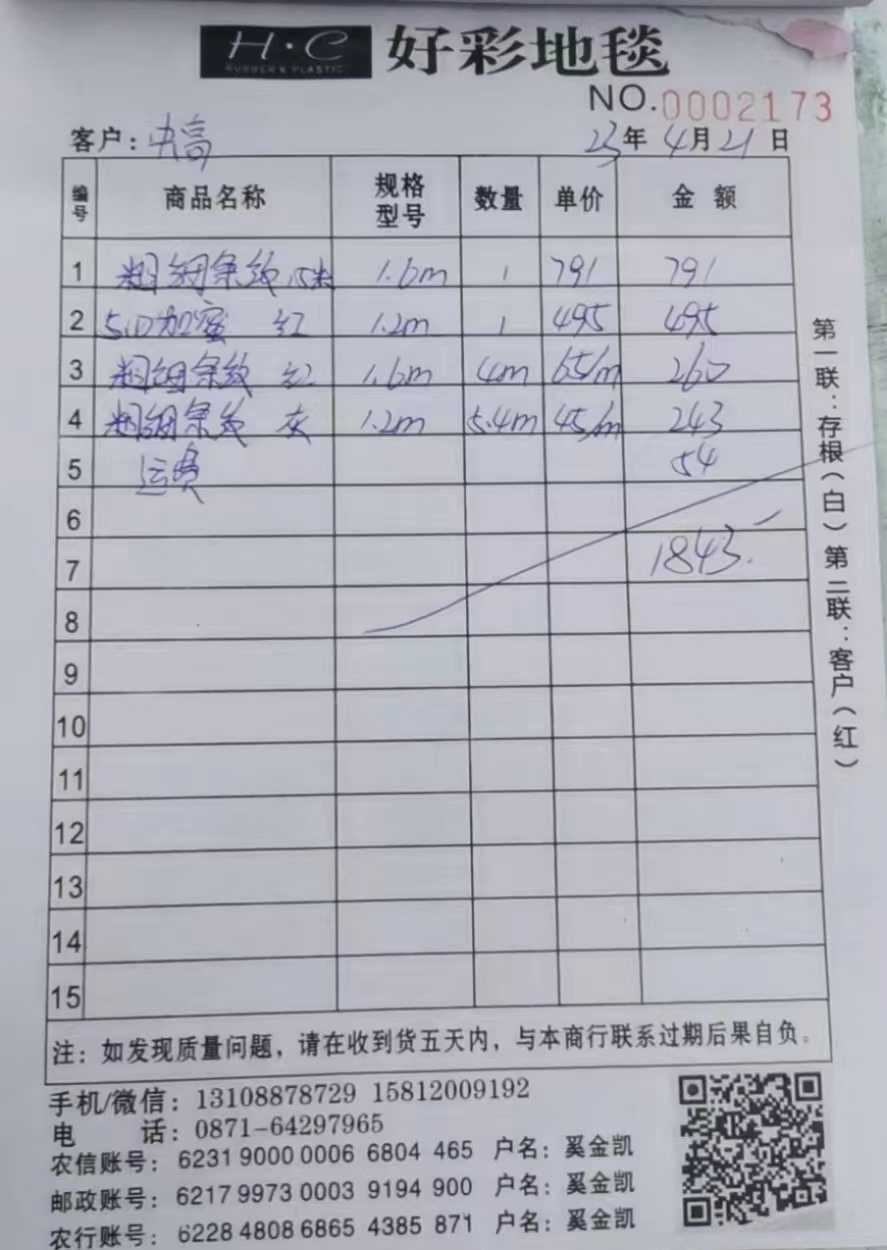 H·C 好彩地毯
RUBBER & PLASTIC
NO.0002173
客户：中高 23年4月21日
编号 商品名称 规格型号 数量 单价 金额
1 粗细条纹 15米 1.6m 1 791 791
2 510加密 红 1.2m 1 495 495
3 粗细条纹 红 1.6m 4m 65/m 260
4 粗细条纹 灰 1.2m 5.4m 45/m 243
5 运费 54
6
7 1843.
8
9
10
11
12
13
14
15
第一联：存根（白）第二联：客户（红）
注：如发现质量问题，请在收到货五天内，与本商行联系过期后果自负。
手机/微信：13108878729 15812009192
电 话：0871-64297965
农信账号：6231 9000 0006 6804 465 户名：奚金凯
邮政账号：6217 9973 0003 9194 900 户名：奚金凯
农行账号：6228 4808 6865 4385 871 户名：奚金凯